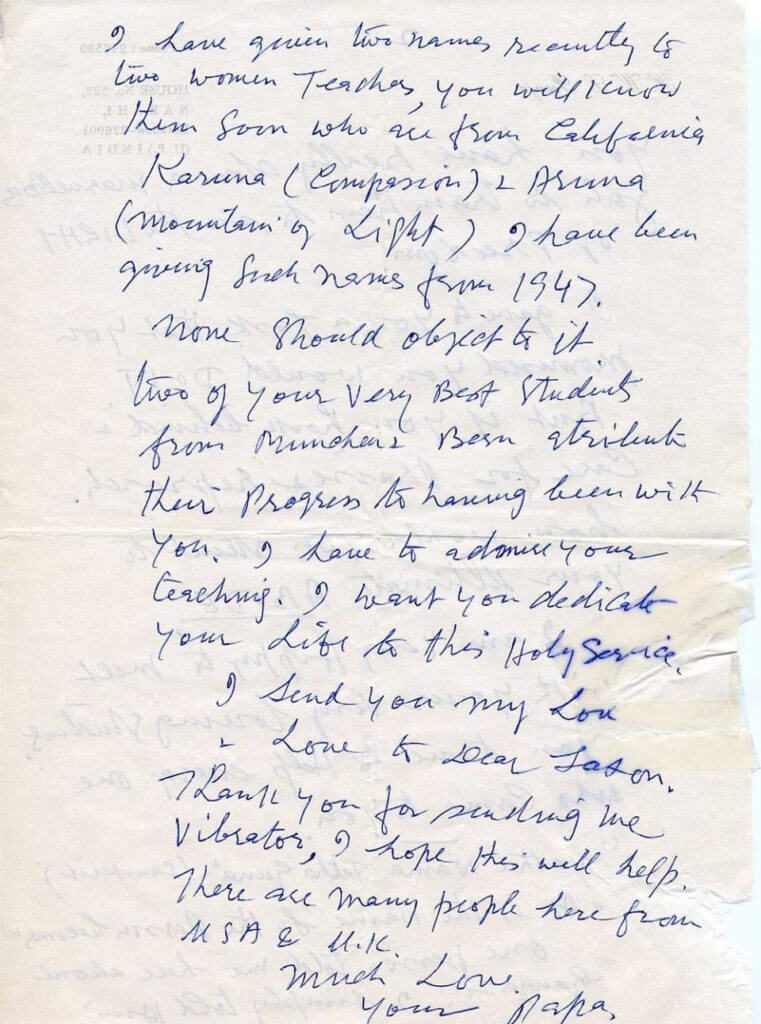 I have given two names recently to
two women Teachers, you will know
them soon who are from California
Karuna (Compassion) & Aruna
(Mountain of Light) I have been
giving such names from 1947.
None Should object to it
two of your Very Best Students
from Munchen & Bern atribute
their Progress to having been with
you. I have to admire your
teaching. I want you dedicate
your Life to this Holy Service.
I send you my Love
& Love to Dear Jason.
Thank you for sending me
Vibrator, I hope this will help.
There are many people here from
USA & U.K.
Much Love
Your Papa.